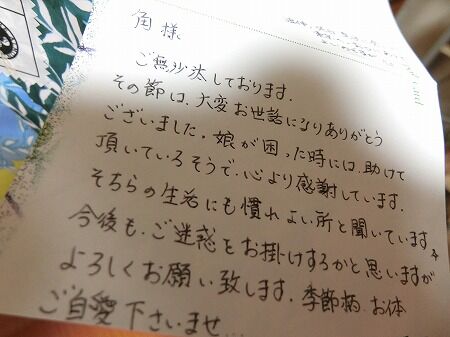 角様
ご無沙汰しております.
その節は、大変お世話になりありがとう
ございました。娘が困った時には、助けて
頂いているそうで、心より感謝しています.
そちらの生活にも慣れよい所と聞いています
今後も、ご迷惑をお掛けするかと思いますが
よろしくお願い致します.季節柄、お体
ご自愛下さいませ...